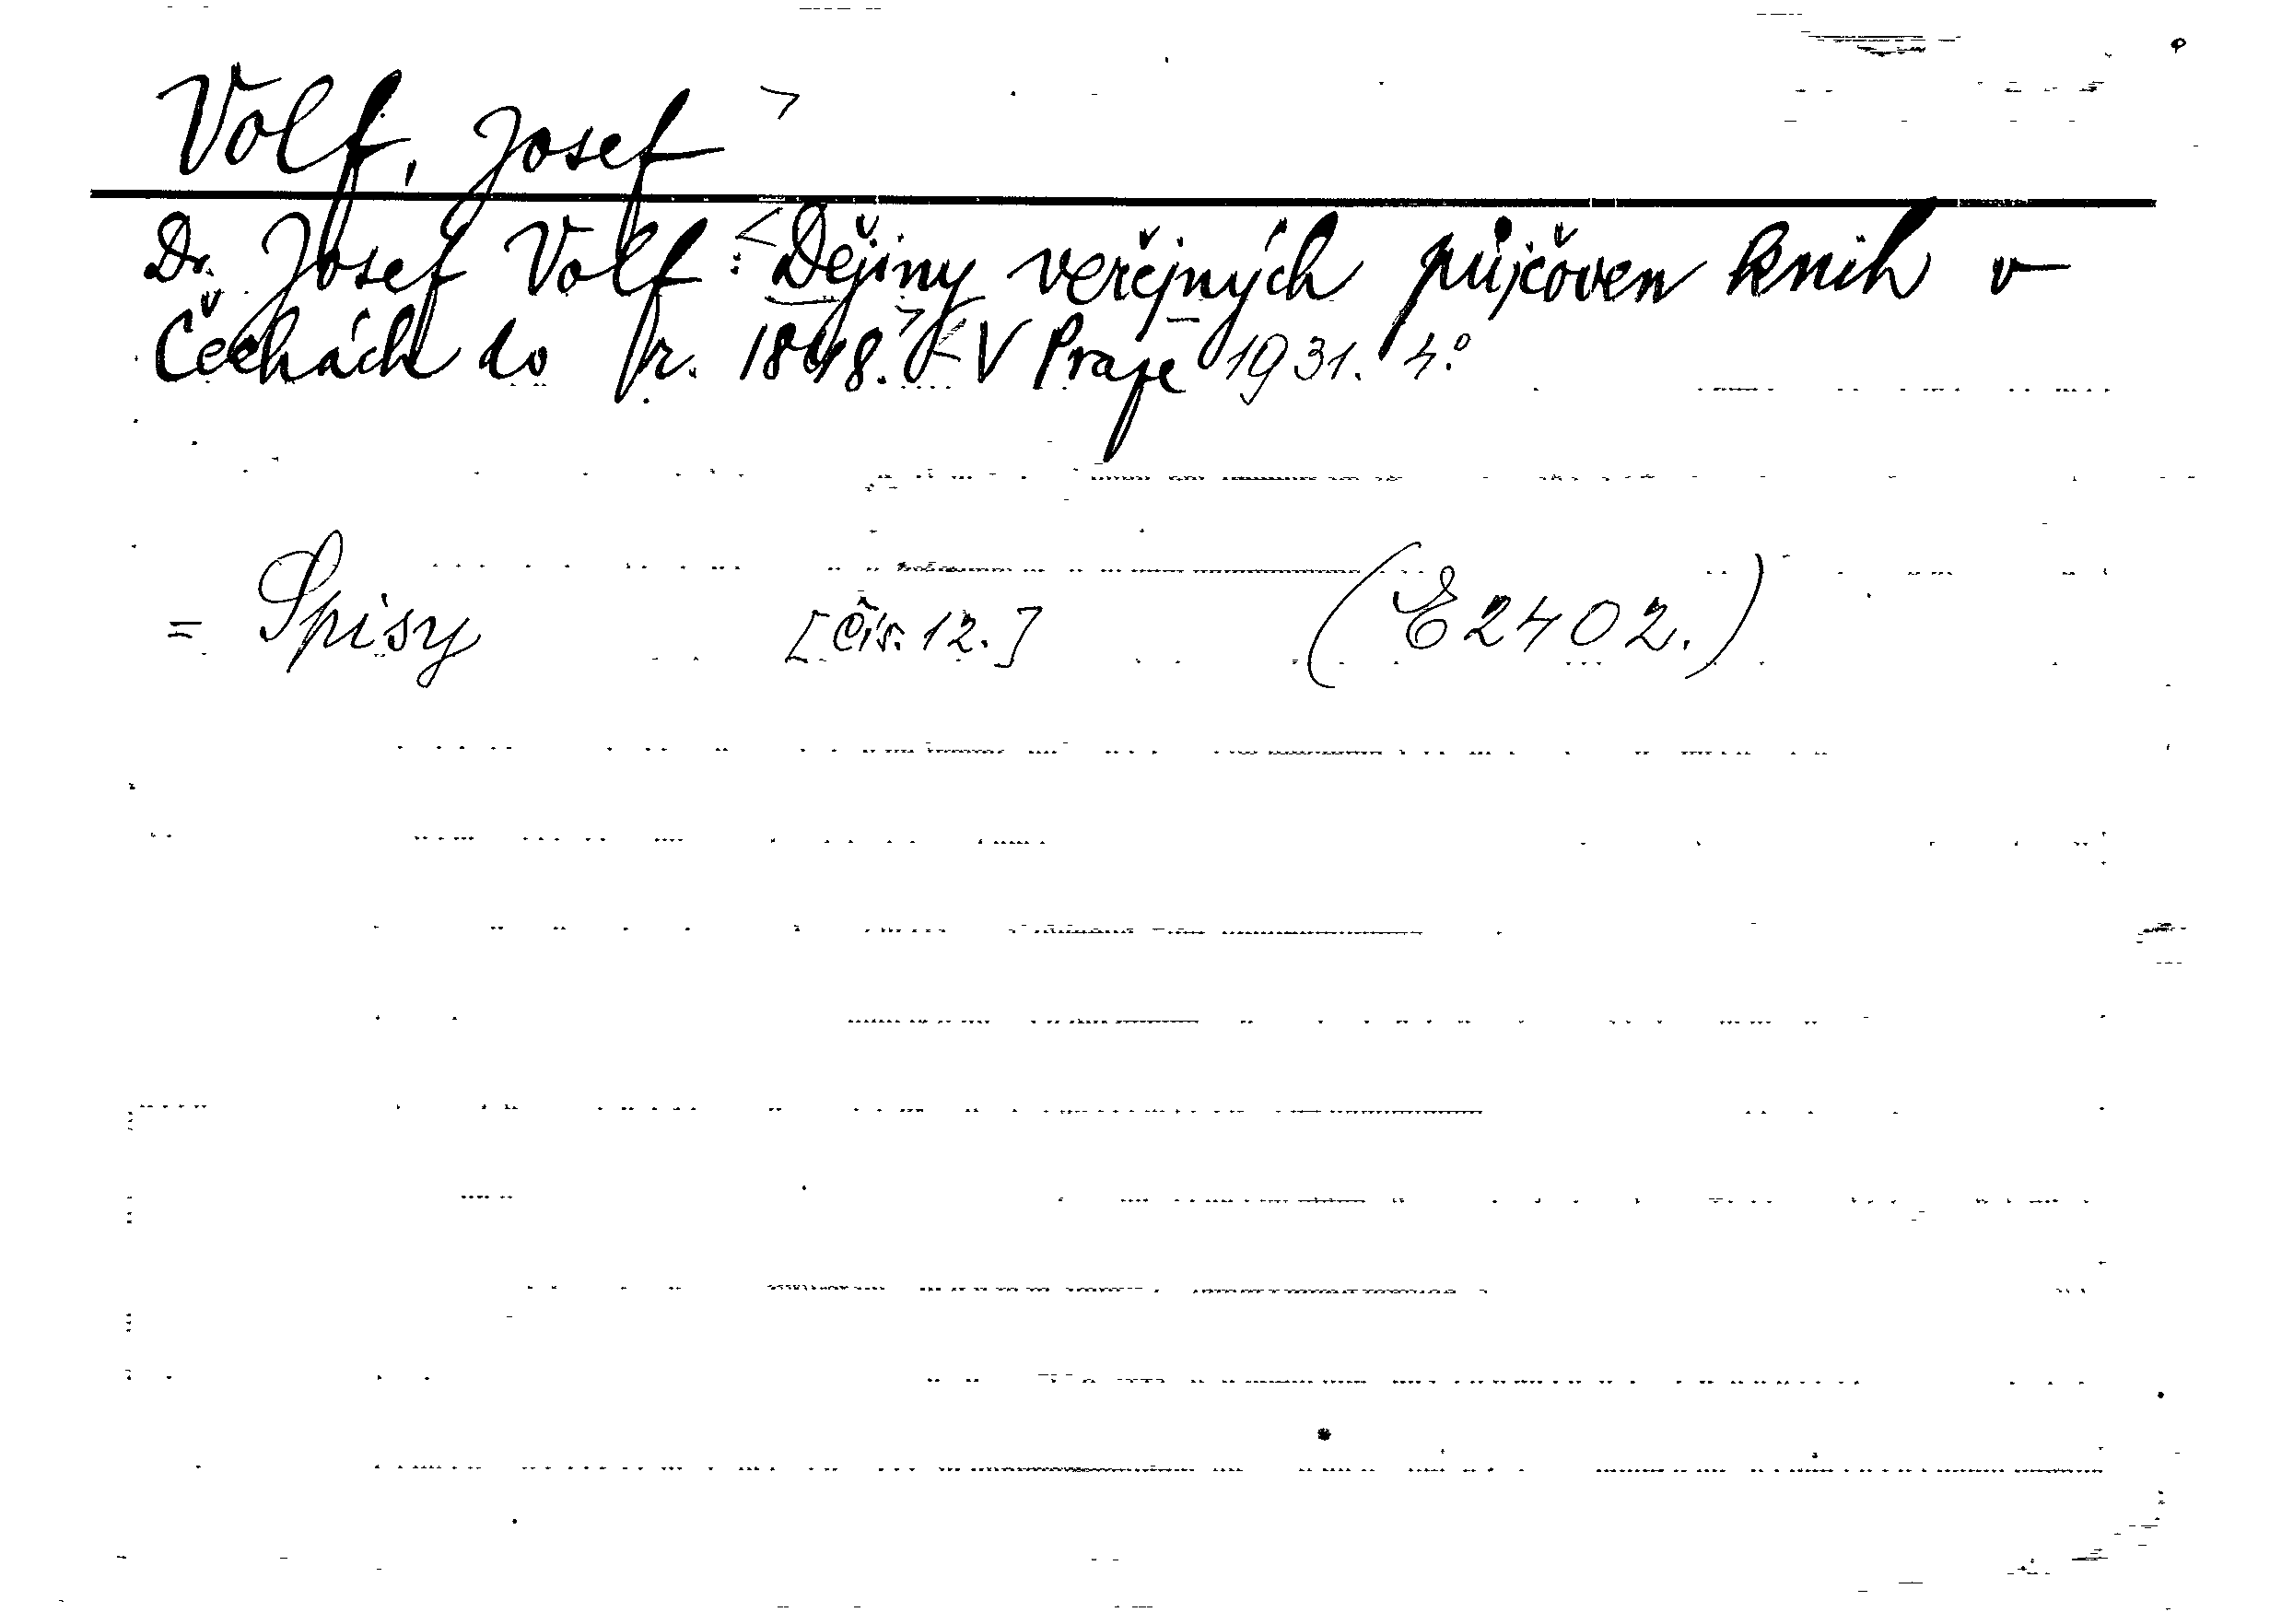 Volf, Josef >
Dr. Josef Volf: <Dějiny veřejných půjčoven knih v
Čechách do r. 1848.> < V Praze 1931. 4.°
= Spisy [čís. 12.] (E 2402.)